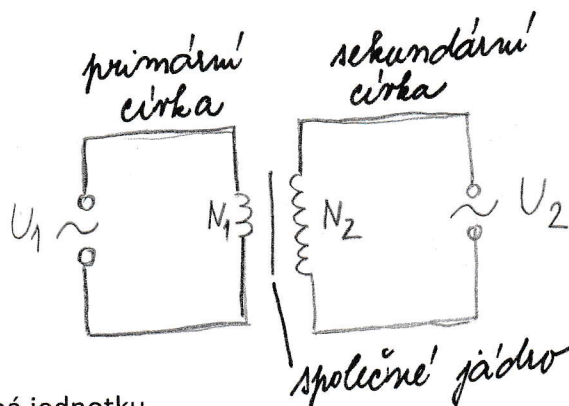 primární
cívka
sekundární
cívka
U1 ~
N1
N2
~ U2
společné jádro
jednotku